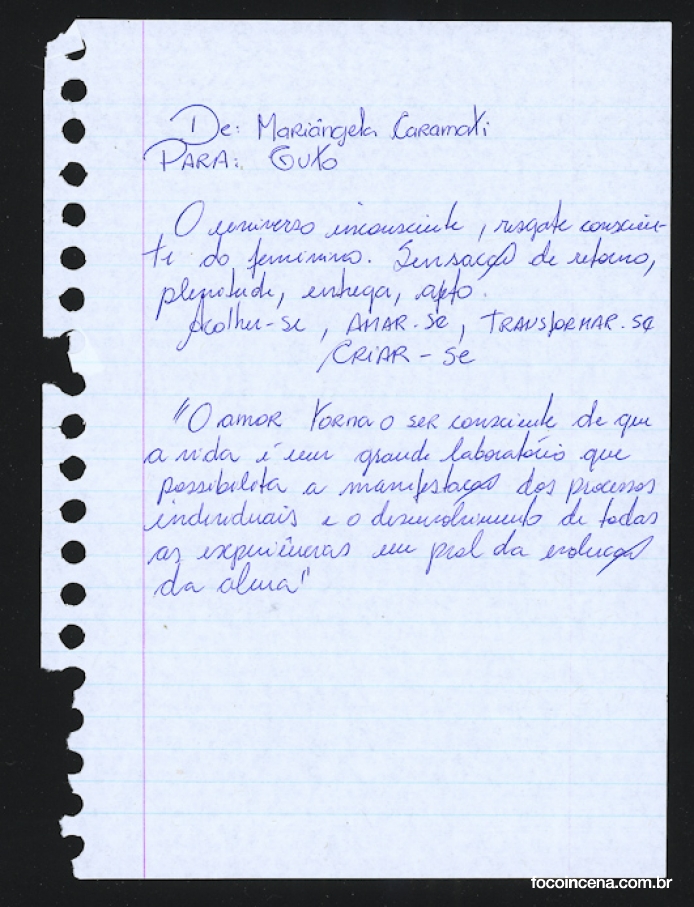 De: Mariângela Caramati
PARA: Guto
O universo inconsciente, resgate conscien-
te do feminino. Sensação de retorno,
plenitude, entrega, afeto.
Acolher-se, AMAR-se, TRANSFORMAR-se
CRIAR-se
"O amor torna o ser consciente de que
a vida é um grande laboratório que
possibilita a manifestação dos processos
individuais e o desenvolvimento de todas
as experiências em prol da evolução
da alma"
focoincena.com.br